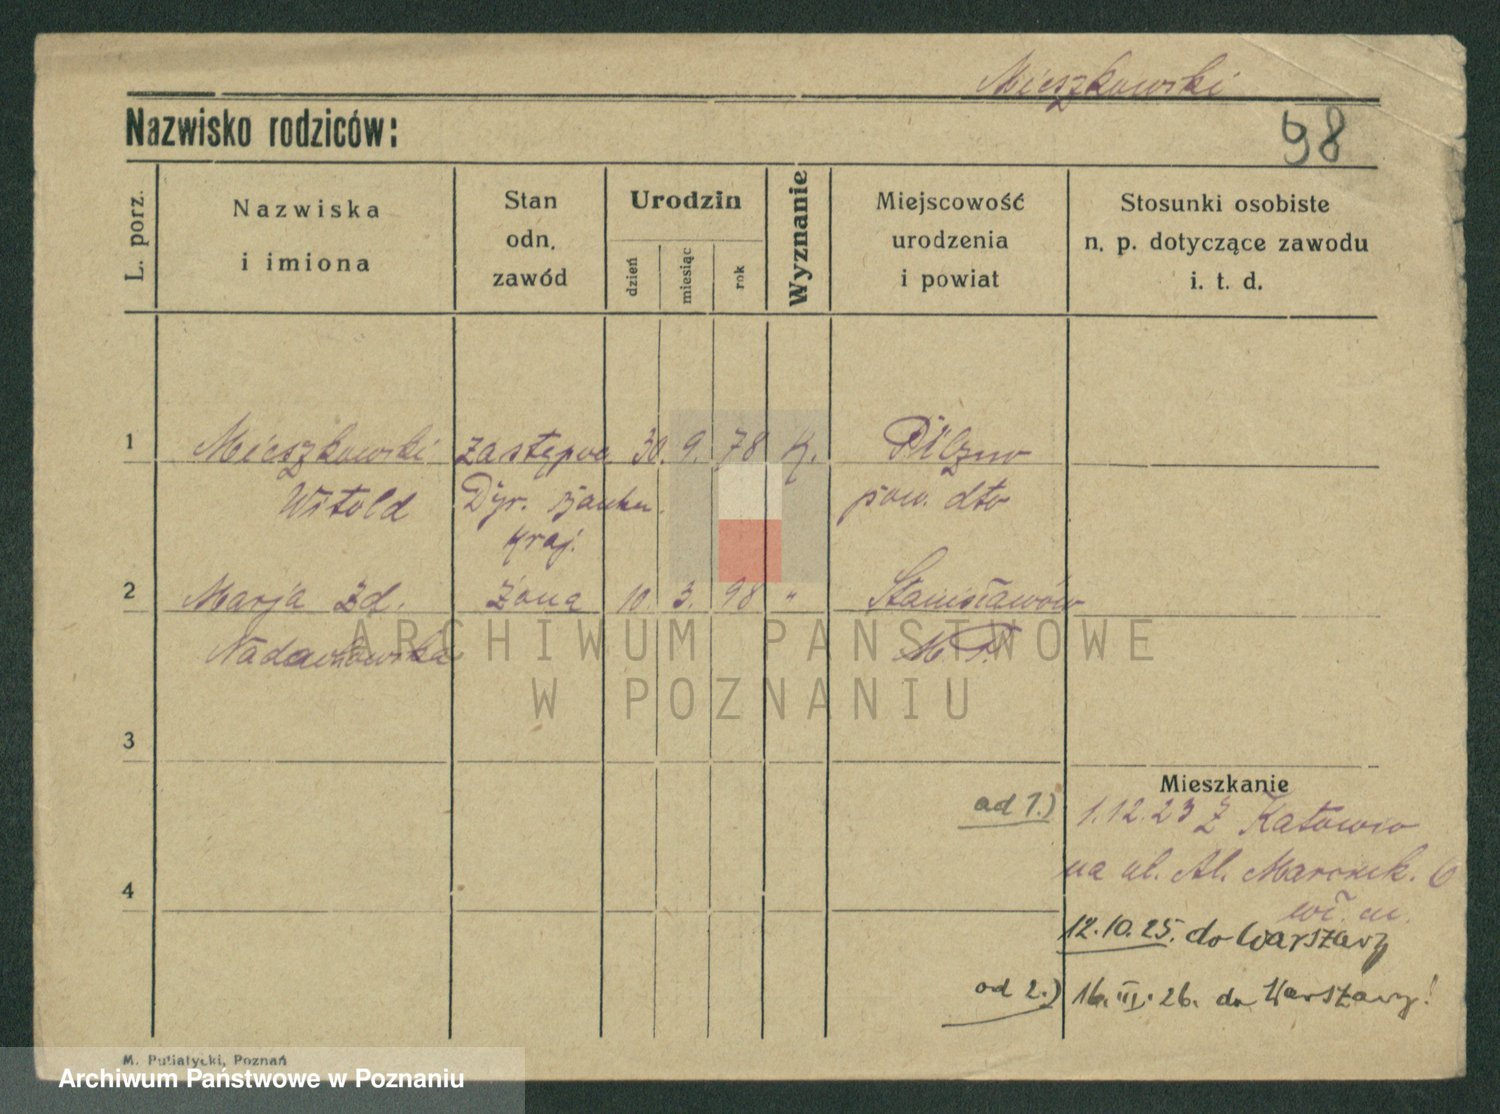 Mieszkowski
Nazwisko rodziców:
98
L. porz.
Nazwiska
i imiona
Stan
odn.
zawód
Urodzin
dzień
miesiąc
rok
Wyznanie
Miejscowość
urodzenia
i powiat
Stosunki osobiste
n. p. dotyczące zawodu
i. t. d.
1 Mieszkowski zastępca 30. 9. 78 K. Pilzno
Witold Dyr. Banku pow. dto
Kraj.
2 Marja zd. żona 10. 3. 98 " Stanisławów
M. P.
ARCHIWUM PAŃSTWOWE
W POZNANIU
3
Mieszkanie
od 1.) 1.12.23 z Katowic
na ul. Al. Marcink. 6
wł. m.
4
12.10.25. do Warszawy
od 2.) 16.III.26. do Warszawy!
M. Putiatycki, Poznań
Archiwum Państwowe w Poznaniu